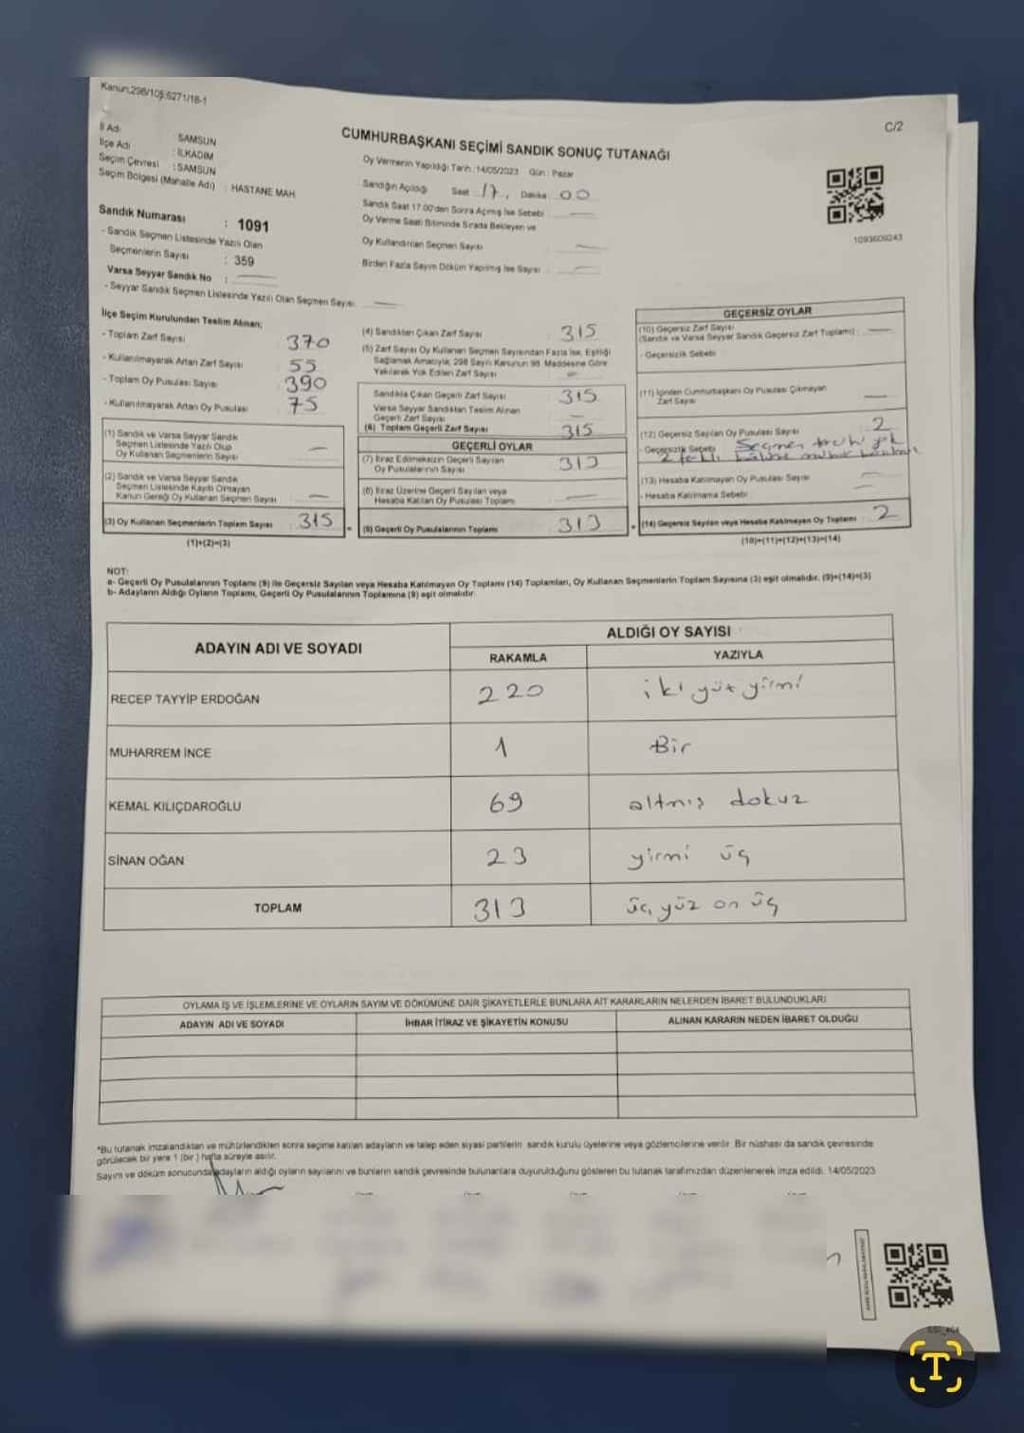 Kanun:298/105:6271/18-1
C/2
CUMHURBAŞKANI SEÇİMİ SANDIK SONUÇ TUTANAĞI
İl Adı : SAMSUN
İlçe Adı : İLKADIM
Seçim Çevresi : SAMSUN
Seçim Bölgesi (Mahalle Adı) : HASTANE MAH
Sandık Numarası : 1091
- Sandık Seçmen Listesinde Yazılı Olan
Seçmenlerin Sayısı : 359
Varsa Seyyar Sandık No :
- Seyyar Sandık Seçmen Listesinde Yazılı Olan Seçmen Sayısı
Oy Vermenin Yapıldığı Tarih : 14/05/2023 Gün : Pazar
Sandığın Açıldığı Saat 17, Dakika 00
Sandık Saat 17.00'den Sonra Açılmış İse Sebebi
Oy Verme Saati Bitiminde Sırada Bekleyen ve
Oy Kullandırılan Seçmen Sayısı
Birden Fazla Sayım Döküm Yapılmış İse Sayısı
1093609243
İlçe Seçim Kurulundan Teslim Alınan;
- Toplam Zarf Sayısı 370
- Kullanılmayarak Artan Zarf Sayısı 55
- Toplam Oy Pusulası Sayısı 390
- Kullanılmayarak Artan Oy Pusulası 75
(1) Sandık ve Varsa Seyyar Sandık
Seçmen Listesinde Yazılı Olup
Oy Kullanan Seçmenlerin Sayısı
(2) Sandık ve Varsa Seyyar Sandık
Seçmen Listesinde Kaydı Olmayan
Kanun Gereği Oy Kullanan Seçmen Sayısı
(3) Oy Kullanan Seçmenlerin Toplam Sayısı 315
(1)+(2)=(3)
(4) Sandıktan Çıkan Zarf Sayısı 315
(5) Zarf Sayısı Oy Kullanan Seçmen Sayısından Fazla İse, Eşitliği
Sağlamak Amacıyla, 298 Sayılı Kanunun 98. Maddesine Göre
Yakılarak Yok Edilen Zarf Sayısı
Sandıkta Çıkan Geçerli Zarf Sayısı 315
Varsa Seyyar Sandıktan Teslim Alınan
Geçerli Zarf Sayısı
(6) Toplam Geçerli Zarf Sayısı 315
GEÇERLİ OYLAR
(7) İtiraz Edilmeksizin Geçerli Sayılan
Oy Pusulalarının Sayısı 313
İtiraz Üzerine Geçerli Sayılan veya
Hesaba Katılan Oy Pusulası Toplamı
(9) Geçerli Oy Pusulalarının Toplamı 313
GEÇERSİZ OYLAR
(10) Geçersiz Zarf Sayısı
(Sandık ve Varsa Seyyar Sandık Geçersiz Zarf Toplamı)
- Geçersizlik Sebebi
(11) İçinden Cumhurbaşkanı Oy Pusulası Çıkmayan
Zarf Sayısı
(12) Geçersiz Sayılan Oy Pusulası Sayısı 2
- Geçersizlik Sebebi Seçmen
(13) Hesaba Katılmayan Oy Pusulası Sayısı
- Hesaba Katılmama Sebebi
(14) Geçersiz Sayılan veya Hesaba Katılmayan Oy Toplamı 2
(10)+(11)+(12)+(13)=(14)
NOT:
a- Geçerli Oy Pusulalarının Toplamı (9) ile Geçersiz Sayılan veya Hesaba Katılmayan Oy Toplamı (14) Toplamları, Oy Kullanan Seçmenlerin Toplam Sayısına (3) eşit olmalıdır. (9)+(14)=(3)
b- Adayların Aldığı Oyların Toplamı, Geçerli Oy Pusulalarının Toplamına (9) eşit olmalıdır.
ADAYIN ADI VE SOYADI
ALDIĞI OY SAYISI
RAKAMLA YAZIYLA
RECEP TAYYİP ERDOĞAN 220 iki yüz yirmi
MUHARREM İNCE 1 Bir
KEMAL KILIÇDAROĞLU 69 altmış dokuz
SİNAN OĞAN 23 yirmi üç
TOPLAM 313 üç yüz on üç
OYLAMA İŞ VE İŞLEMLERİNE VE OYLARIN SAYIM VE DÖKÜMÜNE DAİR ŞİKAYETLERLE BUNLARA AİT KARARLARIN NELERDEN İBARET BULUNDUKLARI
ADAYIN ADI VE SOYADI İHBAR İTİRAZ VE ŞİKAYETİN KONUSU ALINAN KARARIN NEDEN İBARET OLDUĞU
*Bu tutanak imzalandıktan ve mühürlendikten sonra seçime katılan adayların ve talep eden siyasi partilerin sandık kurulu üyelerine veya gözlemcilerine verilir. Bir nüshası da sandık çevresinde
görülecek bir yere 1 (bir) hafta süreyle asılır.
Sayım ve döküm sonucunda adayların aldığı oyların sayılarını ve bunların sandık çevresinde bulunanlara duyurulduğunu gösteren bu tutanak tarafımızdan düzenlenerek imza edildi. 14/05/2023